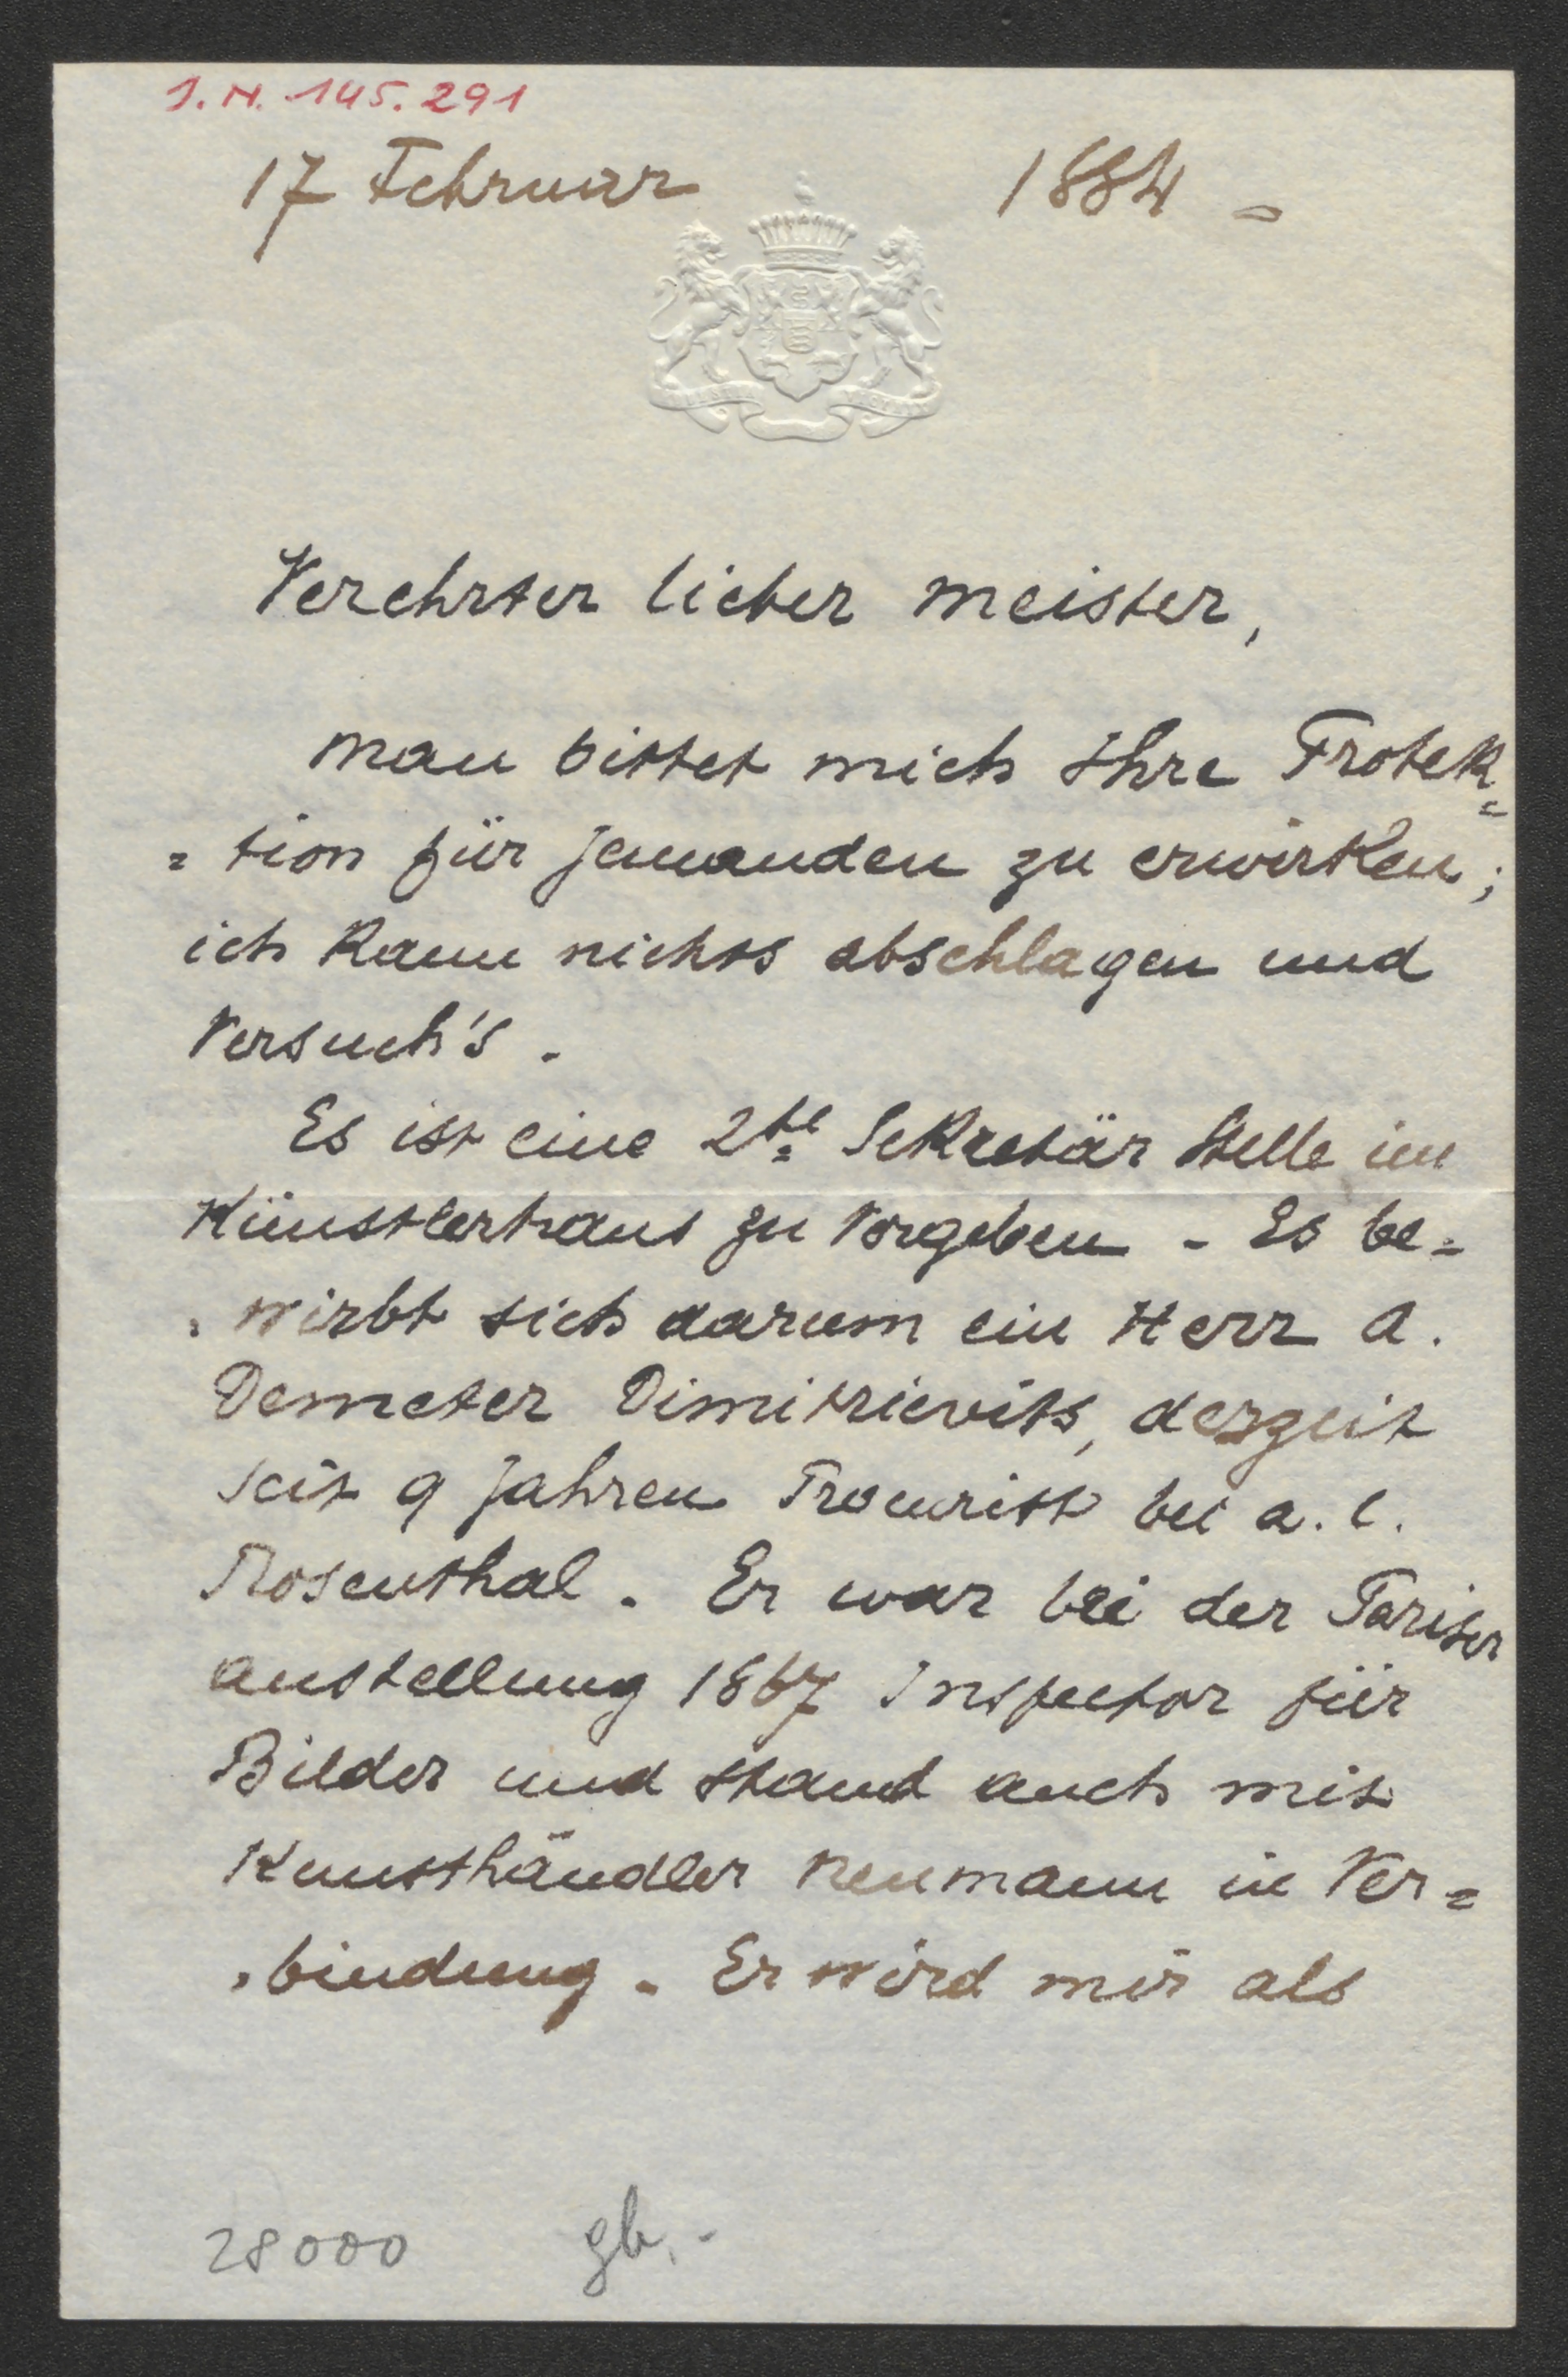 J.N. 145.291
17 Februar 1884 –
Verehrter lieber Meister,
Man bittet mich Ihre Protek=
=tion für Jemanden zu erwirken;
ich kann nichts abschlagen und
versuch's.
Es ist eine 2te Sekretär Stelle im
Künstlerhaus zu vergeben – Es be=
=wirbt sich darum ein Herr A.
Demeter Dimitrievits, derzeit
seit 9 Jahren Procurist bei A. C.
Rosenthal. Er war bei der Pariser
Austellung 1867 Inspector für
Bilder und stand auch mit
Kunsthändler Neumann in Ver=
=bindung. Er wird mir als
28000 gb.-